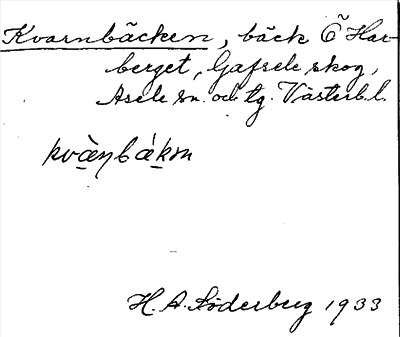 Kvarnbäcken, bäck Ö Har-
berget, Gafsele skog,
Åsele sn. och tg. Västerb.l.
kvànbákɘn
H. A. Söderberg 1933